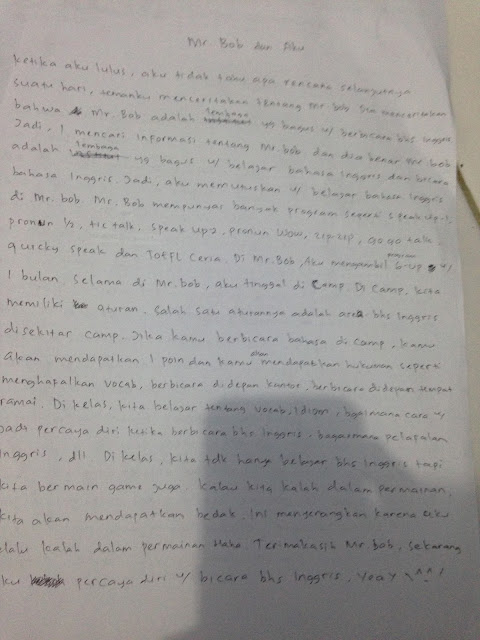 Mr. Bob dan Aku
Ketika aku lulus, aku tidak tahu apa rencana selanjutnya
suatu hari, temanku menceritakan tentang Mr bob dia menceritakan
bahwa Mr. Bob adalah lembaga yg bagus u/ berbicara bhs Inggris
Jadi, I mencari informasi tentang Mr. bob dan dia benar Mr bob
adalah lembaga yg bagus u/ belajar bahasa Inggris dan bicara
bahasa Inggris. Jadi, aku memutuskan u/ belajar bahasa Inggris
di Mr. bob. Mr. Bob mempunyai banyak program seperti speak up 1,
pronun 1/2, tic talk, speak up 2, pronun wow, zip zip, go go talk,
quicky speak dan TOEFL Ceria. Di Mr. Bob, Aku mengambil program 6-up u/
1 bulan. Selama di Mr. bob, aku tinggal di Camp. Di Camp, kita
memiliki aturan. Salah satu aturannya adalah area bhs Inggris
disekitar camp. Jika kamu berbicara bahasa di camp, kamu
akan mendapatkan 1 poin dan kamu akan mendapatkan hukuman seperti
menghapalkan vocab, berbicara didepan kantor, berbicara didepan tempat
ramai. Di kelas, kita belajar tentang vocab, Idiom, bgaimana cara u/
jadi percaya diri ketika berbicara bhs Inggris, bagaimana pelafalan
Inggris, dll. Di kelas, kita tdk hanya belajar bhs Inggris tapi
kita bermain game juga. Kalau kita kalah dalam permainan,
kita akan mendapatkan bedak. Ini menyenangkan karena aku
elalu kalah dalam permainan Haha Terimakasih Mr. bob, sekarang
aku percaya diri u/ bicara bhs Inggris. Yeay \^.^/